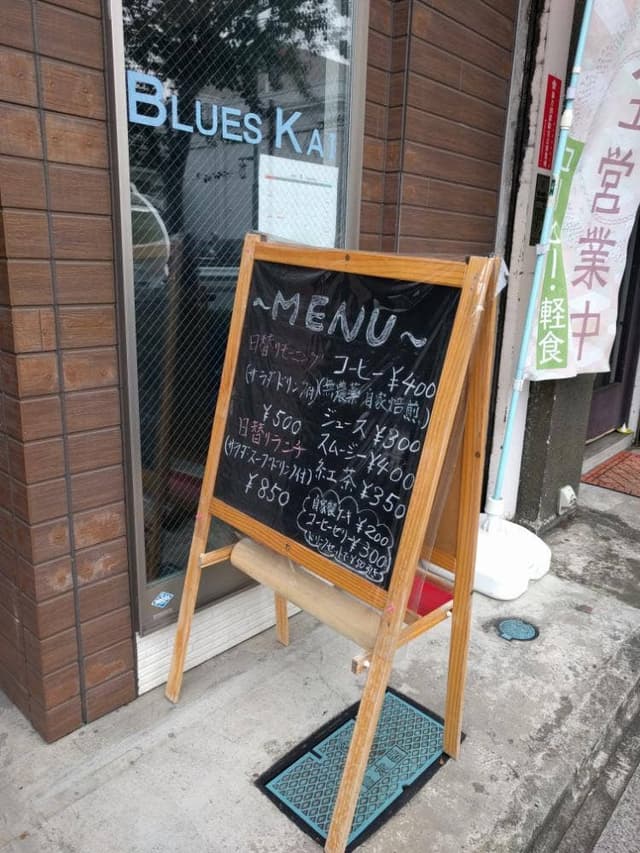 BLUES KAI
~MENU~
日替りモーニング
(サラダ・ドリンク付)
¥500
日替りランチ
(サラダ・スープ・ドリンク付)
¥850
コーヒー ¥400
(無農薬 自家焙煎)
ジュース ¥300
スムージー ¥400
紅茶 ¥350
自家製ケーキ ¥200
コーヒーゼリー ¥300
営業中
軽食